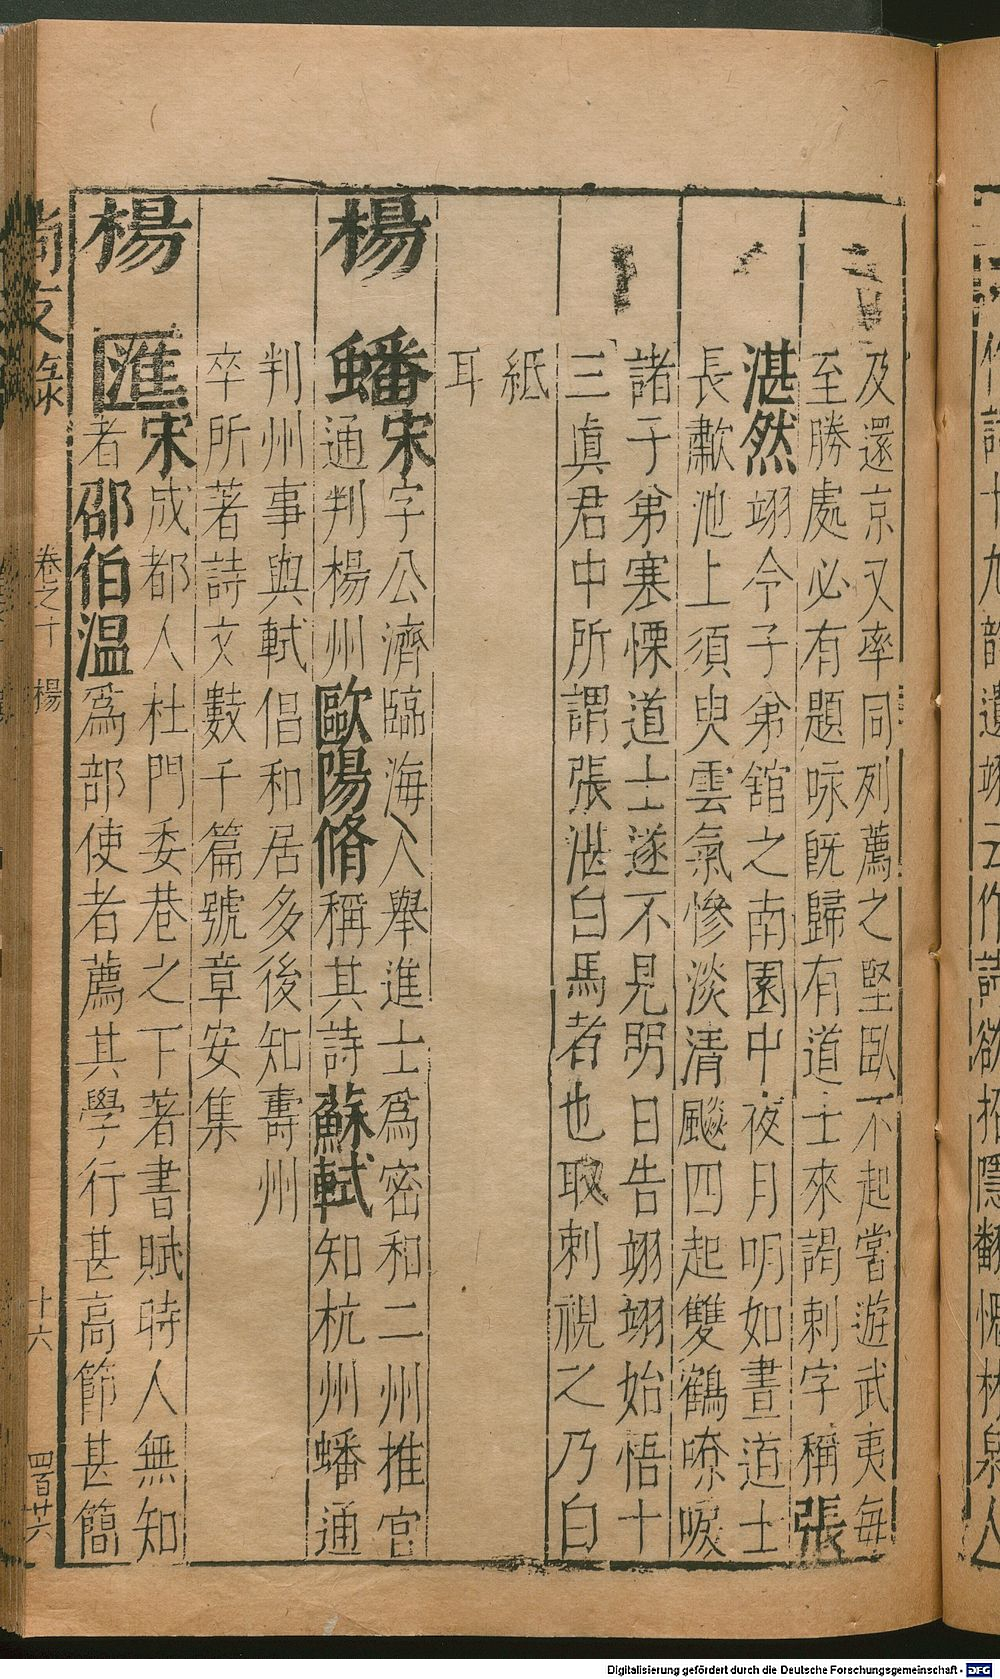 及還京又率同列薦之堅臥不起嘗遊武夷每
至勝處必有題咏既歸有道士來謁刺字稱張
湛然翊令子弟舘之南園中夜月明如晝道士
長歗池上須臾雲氣慘淡清飈四起雙鶴嘹唳
諸子弟寒慄道士遂不見明日告翊翊始悟十
三眞君中所謂張湛白馬者也取刺視之乃白
紙
耳
楊蟠宋字公濟臨海人舉進士爲密和二州推官
通判楊州歐陽脩稱其詩蘇軾知杭州蟠通
判州事與軾倡和居多後知壽州
卒所著詩文數千篇號章安集
楊匯宋成都人杜門委巷之下著書賦時人無知
者邵伯温爲部使者薦其學行甚高節甚簡
尚友錄
卷之十 楊
十六
四百廿六
作詩十九韻遺翊云作詩欲招隱翻慨林泉人
Digitalisierung gefördert durch die Deutsche Forschungsgemeinschaft - DFG